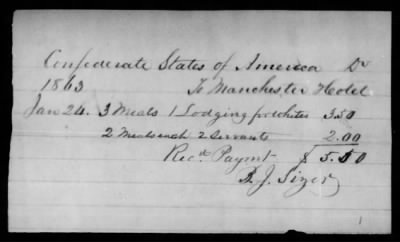 Confederate States of America Dr
1863 To Manchester Hotel
Jan 24. 3 Meals 1 Lodging for whites 3.50
2 Meals each 2 Servants 2.00
Recd. Paymt $ 5.50
J. Sizer
1